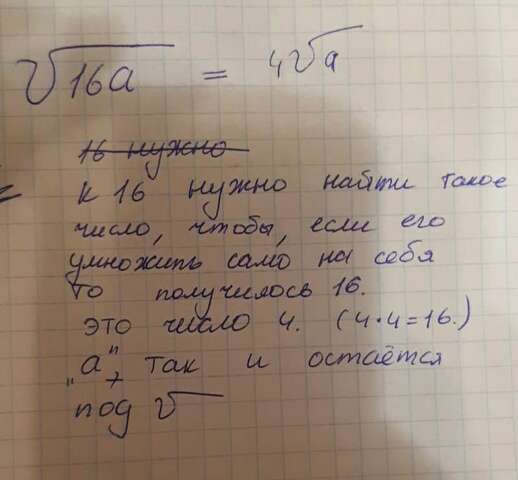 √16a = 4√a
16 нужно
к 16 нужно найти такое
число, чтобы, если его
умножить само на себя
то получилось 16.
это число 4. (4·4=16.)
„а" так и остаётся
под √